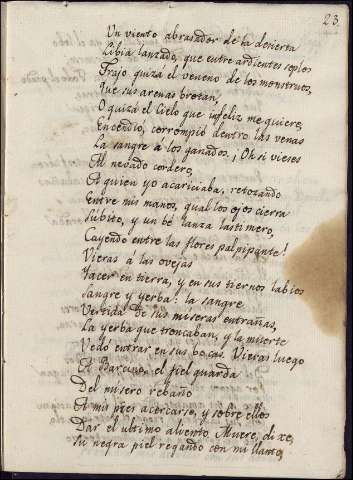 23
Un viento abrasador de la desierta
Libia lanzado, que entre ardientes soplos
Trajo quizá el veneno de los monstruos,
Que sus arenas brotan,
O quizá el Cielo que infeliz me quiere,
Encendio, corrompió dentro las venas
La sangre á los ganados. ¡Oh si vieses
Al nevado cordero,
A quien yo acariciaba, retozando
Entre mis manos, qual los ojos cierra
Subito, y un bé lanza lastimero,
Cayendo entre las flores palpipante!
Vieras á las ovejas
Yacer en tierra, y en sus tiernos labios
Sangre y yerba: la sangre
Vertida de sus miseras entrañas,
La yerba que troncaban, y la muerte
Vedó entrar en sus bocas. Vieras luego
A Barcino, el fiel guarda
Del misero rebaño
A mis pies acercarse, y sobre ellos
Dar el ultimo aliento. Muere, dixe,
Su negra piel regando con mi llanto,